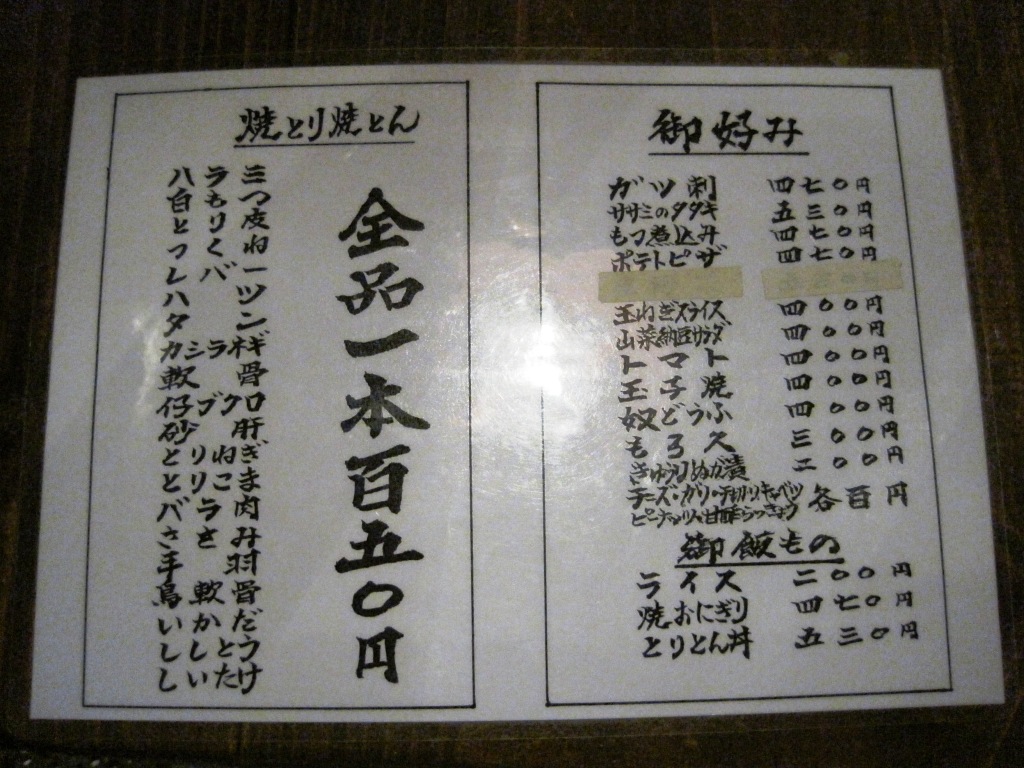 御好み
ガツ刺 四七〇円
ササミのタタキ 五三〇円
もつ煮込み 四七〇円
ポテトピザ 四七〇円
玉ねぎスライス 四〇〇円
山菜納豆サラダ 四〇〇円
トマト 四〇〇円
玉子焼 四〇〇円
奴どうふ 四〇〇円
もろ久 三〇〇円
きゅうりぬか漬 二〇〇円
チーズ・ガリ・千切りキャベツ
ピーナッツ・甘酢らっきょう 各百円
御飯もの
ライス 二〇〇円
焼おにぎり 四七〇円
とりとん丼 五三〇円
焼とり焼とん
全品一本百五〇円
ハラミ
白もつ
とり皮
つくね
レバー
ハツ
タン
カシラネギ
軟骨
仔ブクロ
砂肝
とりねぎ
とりこま
バラ肉
ささみ
手羽
鳥軟骨
いかだ
ししとう
しいたけ